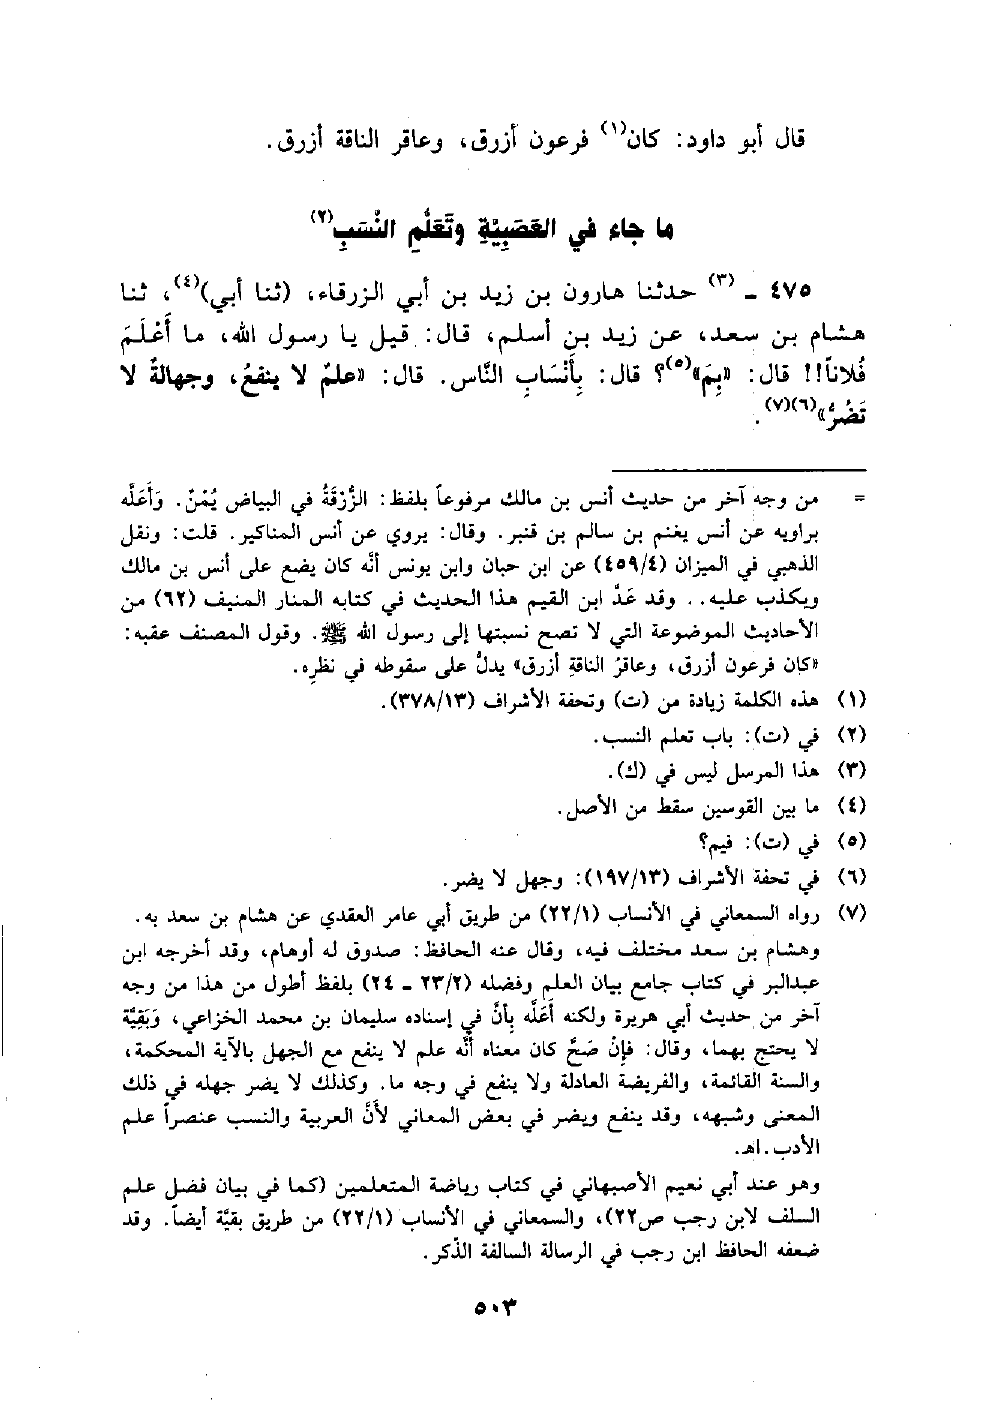 قال أبو داود: كان(١) فرعون أزرق، وعاقر الناقة أزرق.
ما جاء في العَصَبِيَّةِ وتَعَلُّمِ النَّسَبِ(٢)
٤٧٥ ـ (٣) حدثنا هارون بن زيد بن أبي الزرقاء، (ثنا أبي)(٤)، ثنا
هشام بن سعد، عن زيد بن أسلم، قال: قيل يا رسول الله، ما أَعْلَمَ
فُلاناً!! قال: «بِمَ»(٥)؟ قال: بِأَنْسَابِ النَّاس. قال: «علمٌ لا ينفعُ، وجهالةٌ لا
تَضُرُّ»(٦)(٧).
= من وجه آخر من حديث أنس بن مالك مرفوعاً بلفظ: الزُّرْقَةُ في البياض يُمْنٌ. وَأَعَلَّه
براويه عن أنس يغنم بن سالم بن قنبر. وقال: يروي عن أنس المناكير. قلت: ونقل
الذهبي في الميزان (٤٥٩/٤) عن ابن حبان وابن يونس أنَّه كان يضع على أنس بن مالك
ويكذب عليه.. وقد عَدَّ ابن القيم هذا الحديث في كتابه المنار المنيف (٦٢) من
الأحاديث الموضوعة التي لا تصح نسبتها إلى رسول الله ﷺ. وقول المصنف عقبه:
«كان فرعون أزرق، وعاقرُ الناقةِ أزرق» يدلُّ على سقوطه في نظرِه.
(١) هذه الكلمة زيادة من (ت) وتحفة الأشراف (٣٧٨/١٣).
(٢) في (ت): باب تعلم النسب.
(٣) هذا المرسل ليس في (ك).
(٤) ما بين القوسين سقط من الأصل.
(٥) في (ت): فيم؟
(٦) في تحفة الأشراف (١٩٧/١٣): وجهل لا يضر.
(٧) رواه السمعاني في الأنساب (٢٢/١) من طريق أبي عامر العقدي عن هشام بن سعد به.
وهشام بن سعد مختلف فيه، وقال عنه الحافظ: صدوق له أوهام، وقد أخرجه ابن
عبدالبر في كتاب جامع بيان العلم وفضله (٢٣/٢ ـ ٢٤) بلفظ أطول من هذا من وجه
آخر من حديث أبي هريرة ولكنه أَعَلَّه بأنَّ في إسناده سليمان بن محمد الخزاعي، وَبَقِيَّة
لا يحتج بهما، وقال: فإنْ صَحَّ كان معناه أنَّه علم لا ينفع مع الجهل بالآية المحكمة،
والسنة القائمة، والفريضة العادلة ولا ينفع في وجه ما. وكذلك لا يضر جهله في ذلك
المعنى وشبهه، وقد ينفع ويضر في بعض المعاني لأنَّ العربية والنسب عنصراً علم
الأدب.اهـ.
وهو عند أبي نعيم الأصبهاني في كتاب رياضة المتعلمين (كما في بيان فضل علم
السلف لابن رجب ص٢٢)، والسمعاني في الأنساب (٢٢/١) من طريق بقيَّة أيضاً. وقد
ضعفه الحافظ ابن رجب في الرسالة السالفة الذّكر.
٥٠٣